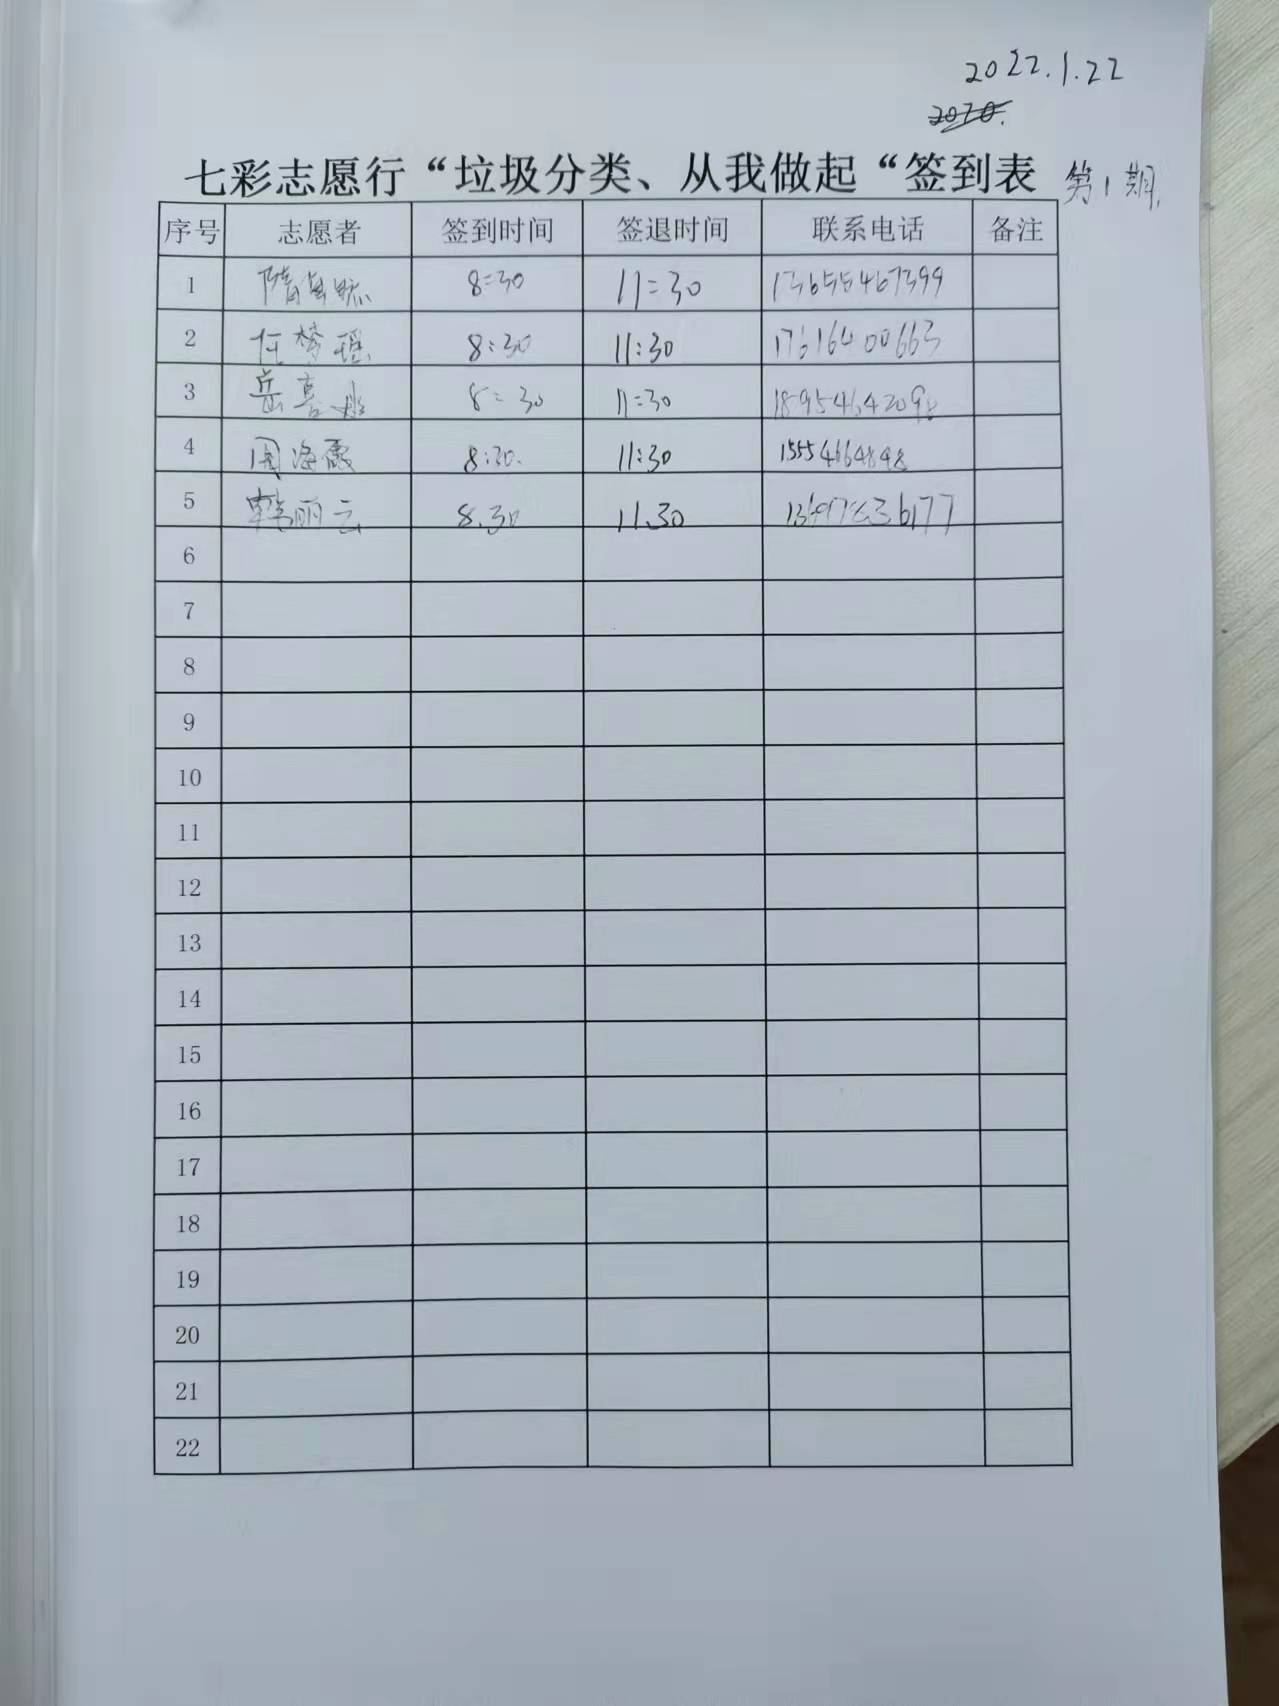 2022.1.22
七彩志愿行“垃圾分类、从我做起“签到表 第1期.
序号 志愿者 签到时间 签退时间 联系电话 备注
1 8:30 11:30 13655467399
2 任梦瑶 8:30 11:30 17616400663
3 岳喜 8:30 11:30 18954642098
4 周海霞 8:30. 11:30 15554664848
5 韩丽云 8.30 11.30
6
7
8
9
10
11
12
13
14
15
16
17
18
19
20
21
22